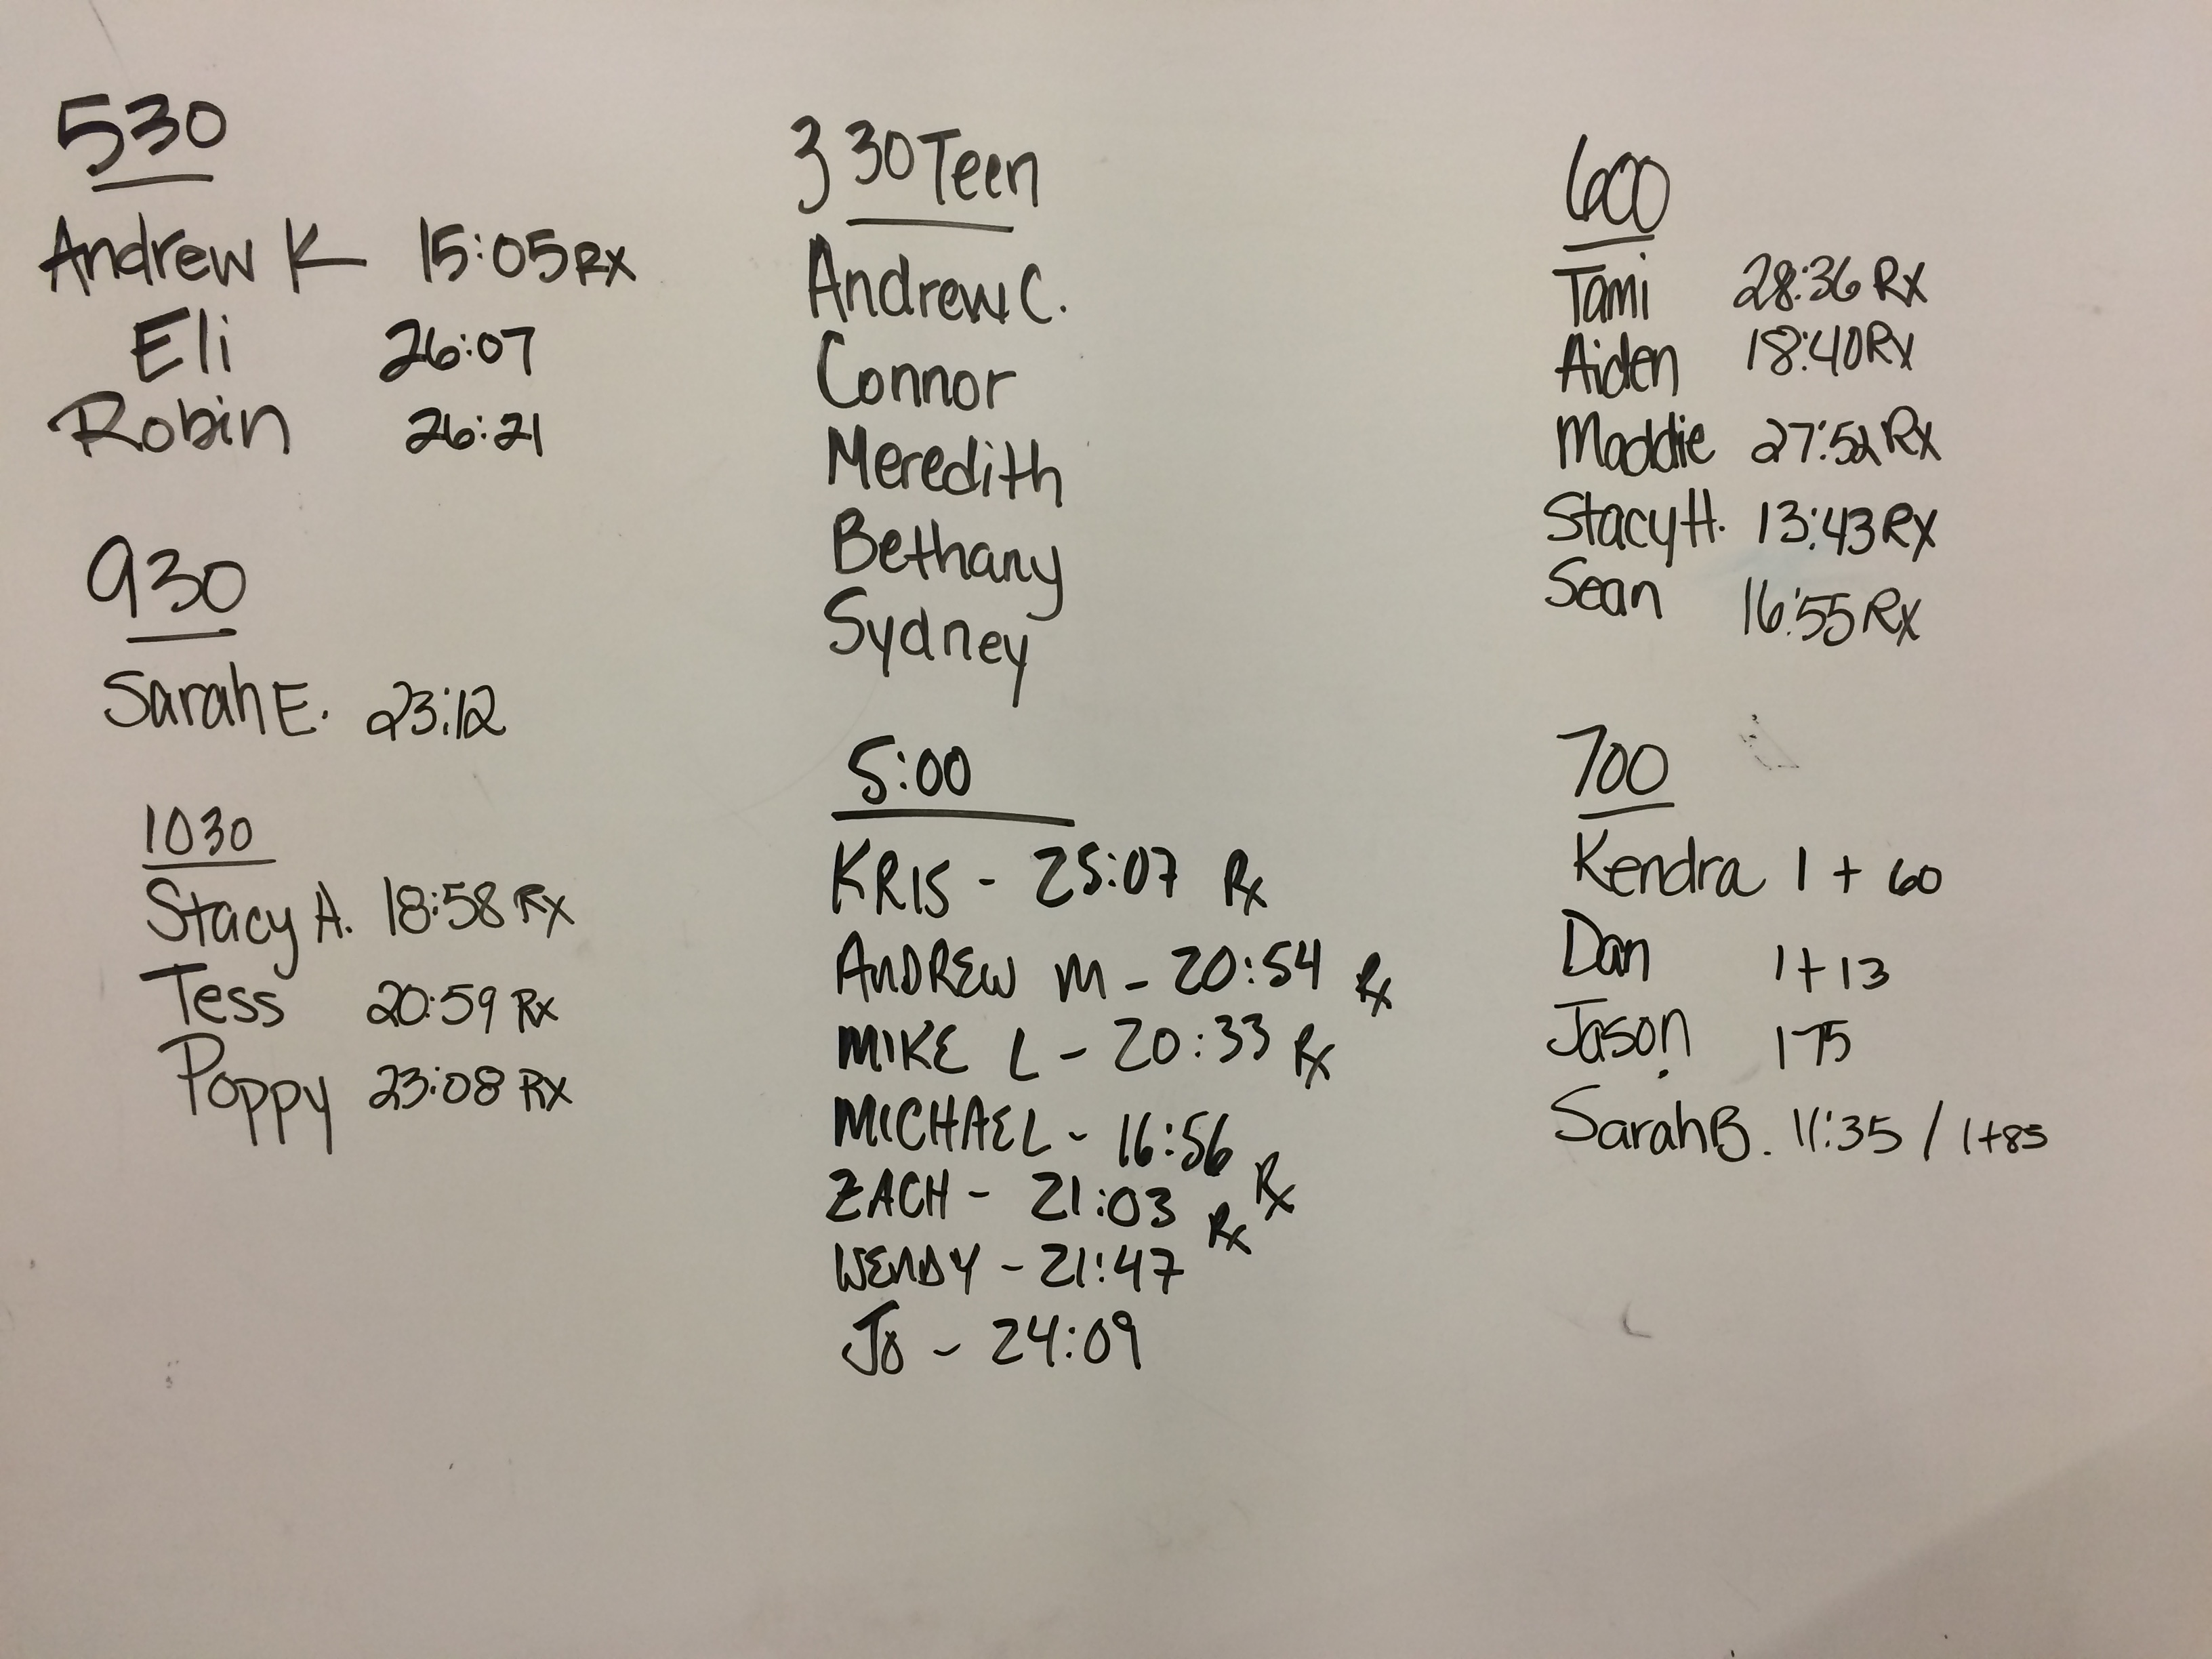 530
Andrew K 15:05 Rx
Eli 26:07
Robin 26:21
930
Sarah E. 23:12
1030
Stacy A. 18:58 Rx
Tess 20:59 Rx
Poppy 23:08 Rx
330 Teen
Andrew C.
Connor
Meredith
Bethany
Sydney
5:00
KRIS - 25:07 Rx
ANDREW M - 20:54 Rx
MIKE L - 20:33 Rx
MICHAEL - 16:56 Rx
ZACH - 21:03 Rx
WENDY - 21:47
JO - 24:09
600
Tami 28:36 Rx
Aiden 18:40 Rx
Maddie 27:52 Rx
Stacy H. 13:43 Rx
Sean 16:55 Rx
700
Kendra 1 + 60
Dan 1+13
Jason 175
Sarah B. 11:35 / 1+85